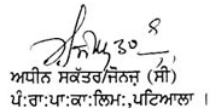 ਅਧੀਨ ਸਕੱਤਰ/ਜੋਨਜ਼ (ਸੀ)
ਪੰ:ਰਾ:ਪਾ:ਕਾ:ਲਿਮ:,ਪਟਿਆਲਾ ।